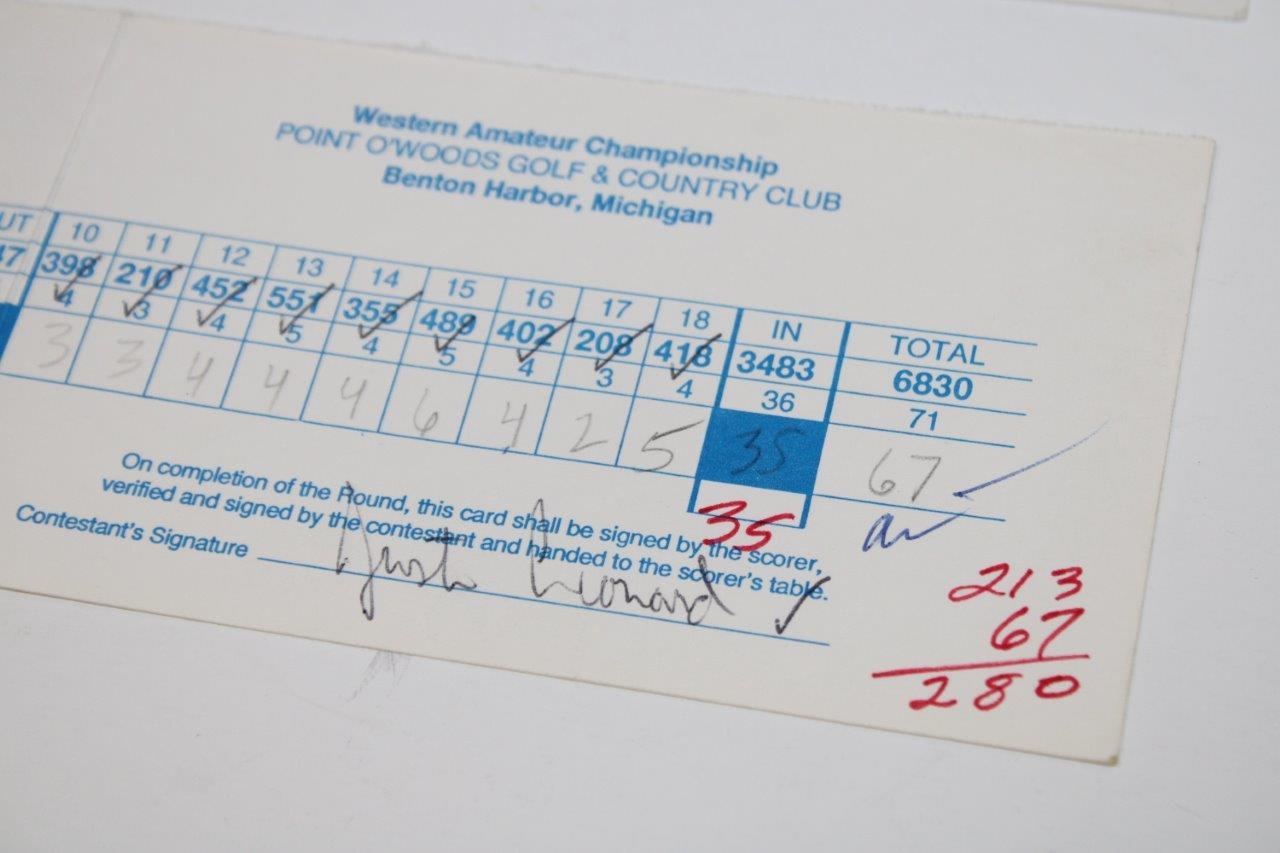 Western Amateur Championship
POINT O'WOODS GOLF & COUNTRY CLUB
Benton Harbor, Michigan
UT 10 11 12 13 14 15 16 17 18 IN TOTAL
47 398 210 452 551 355 489 402 208 418 3483 6830
4 3 4 5 4 5 4 3 4 36 71
3 3 4 4 4 6 4 2 5 35 67
35
On completion of the Round, this card shall be signed by the scorer,
verified and signed by the contestant and handed to the scorer's table.
Contestant's Signature Justin Leonard
213
67
280